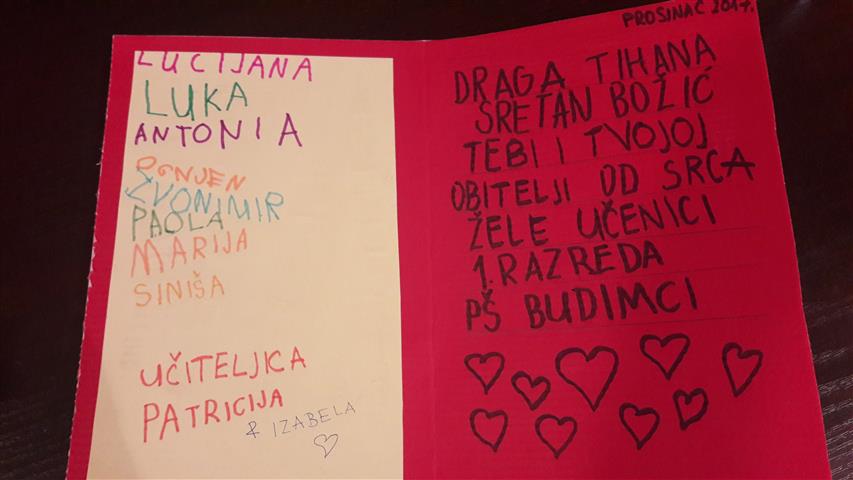 LUCIJANA
LUKA
ANTONIA
OGNJEN
ZVONIMIR
PAOLA
MARIJA
SINIŠA
UČITELJICA
PATRICIJA
& IZABELA
PROSINAC 2017.
DRAGA TIHANA
SRETAN BOŽIĆ
TEBI I TVOJOJ
OBITELJI OD SRCA
ŽELE UČENICI
1. RAZREDA
PŠ BUDIMCI